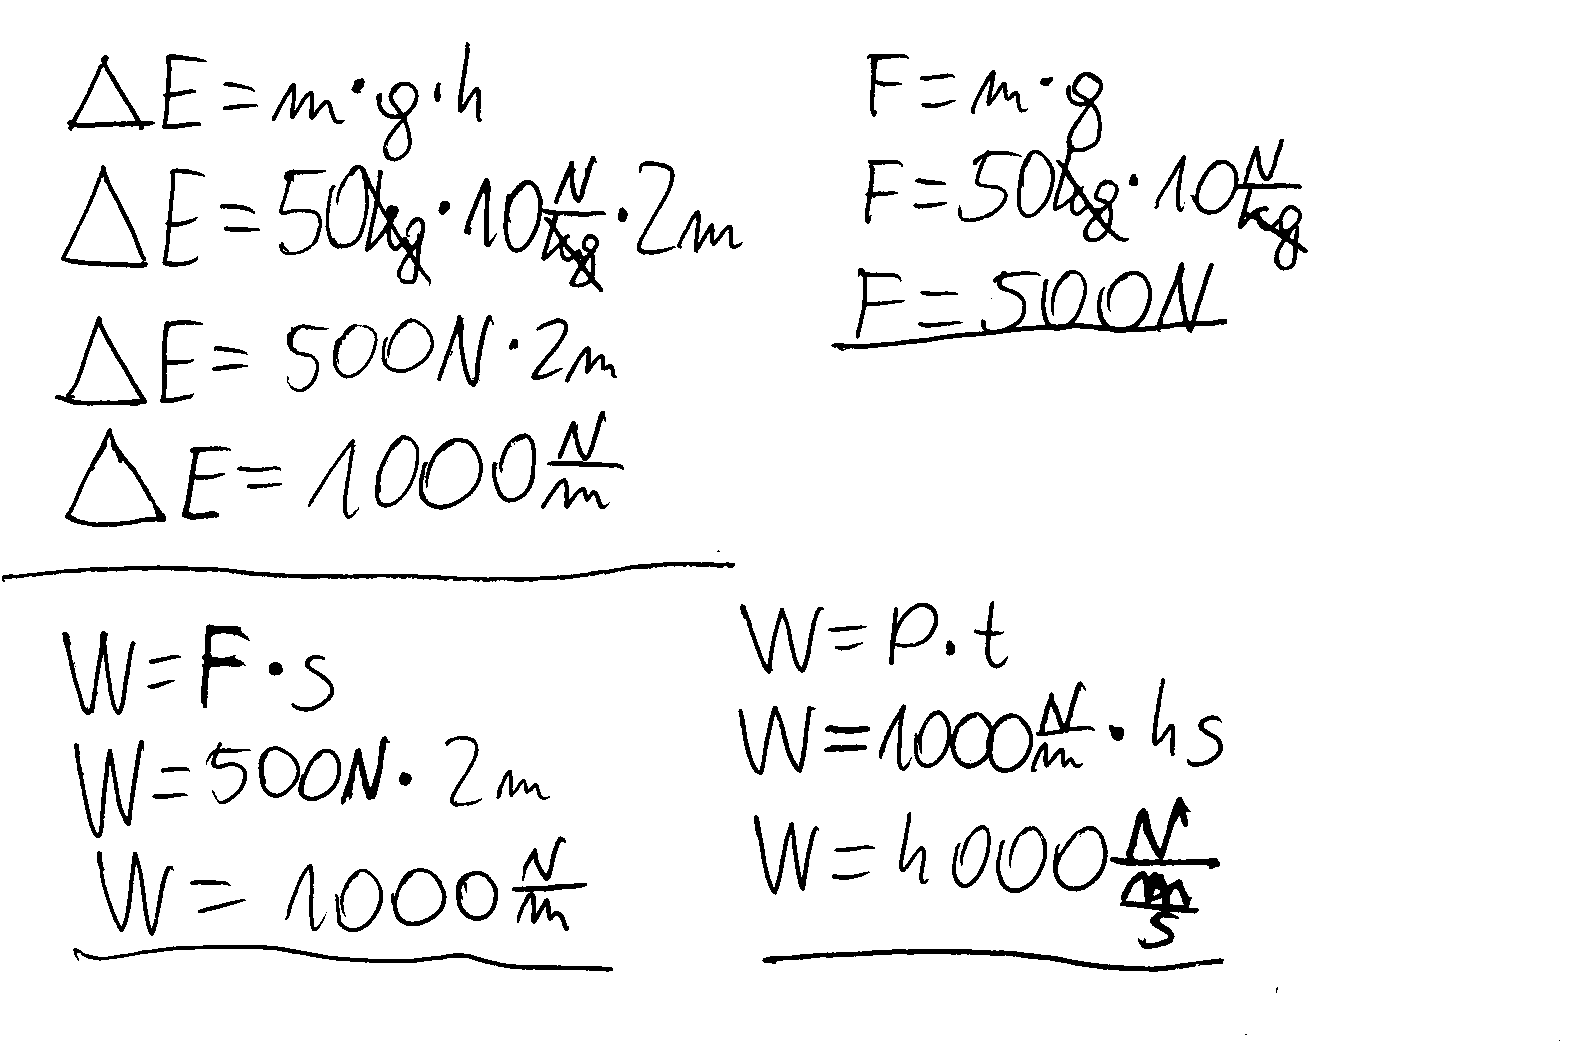 ΔE = m · g · h
ΔE = 50kg · 10 N/kg · 2m
ΔE = 500N · 2m
ΔE = 1000 N/m
F = m · g
F = 50kg · 10 N/kg
F = 500N
W = F · s
W = 500N · 2m
W = 1000 N/m
W = P · t
W = 1000 N/m · 4s
W = 4000 N/m/s